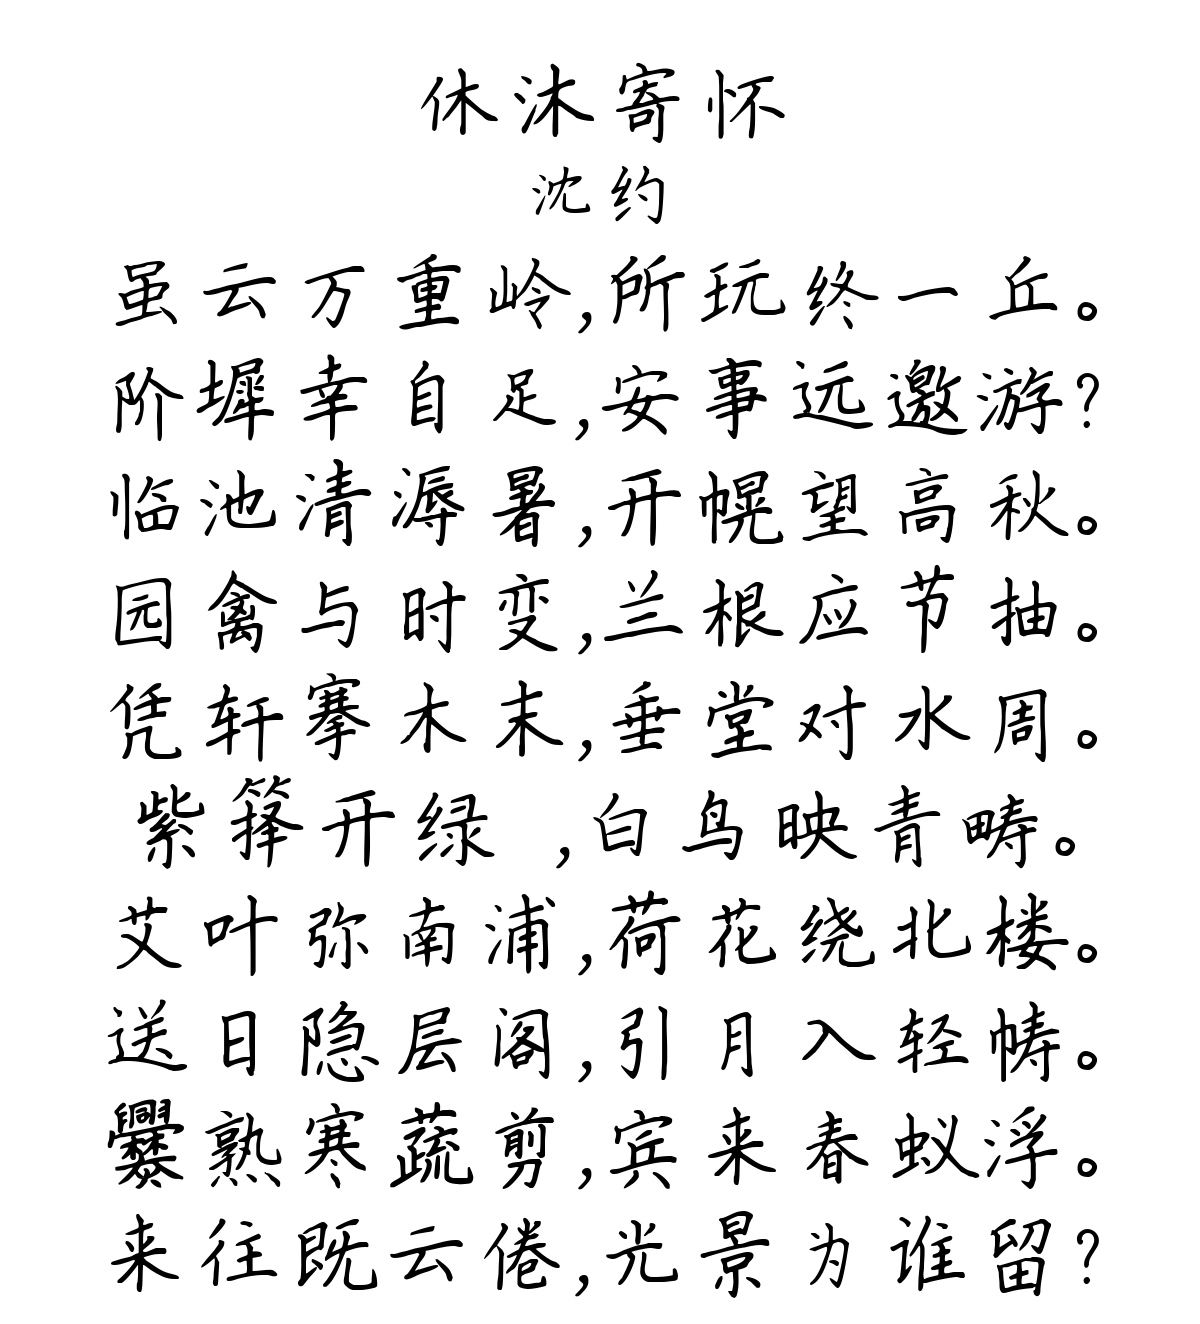 休沐寄怀
沈约
虽云万重岭,所玩终一丘。
阶墀幸自足,安事远邀游?
临池清溽暑,开幌望高秋。
园禽与时变,兰根应节抽。
凭轩搴木末,垂堂对水周。
紫箨开绿 ,白鸟映青畴。
艾叶弥南浦,荷花绕北楼。
送日隐层阁,引月入轻帱。
爨熟寒蔬剪,宾来春蚁浮。
来往既云倦,光景为谁留?